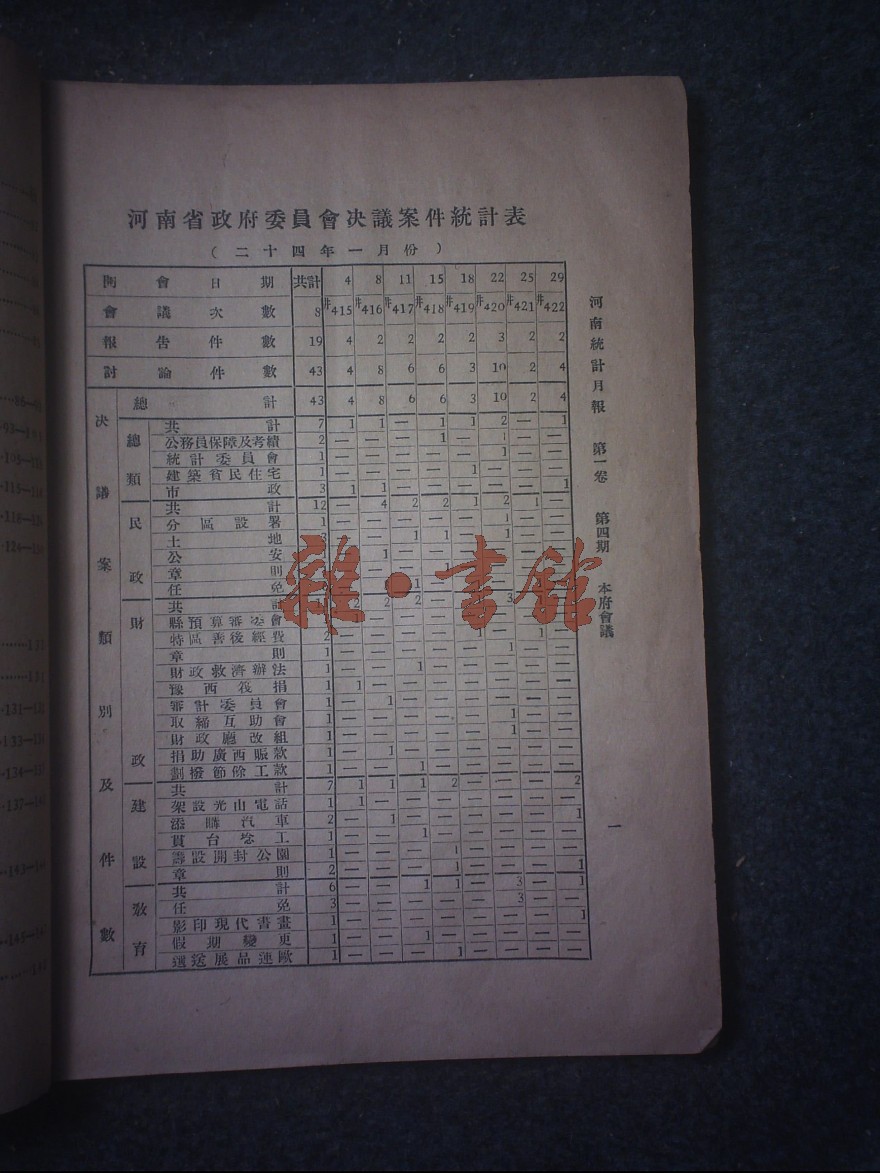 河南省政府委員會决議案件統計表
(二十四年一月份)
開會日期 共計 4 8 11 15 18 22 25 29
會議次數 8 #415 #416 #417 #418 #419 #420 #421 #422
報告件數 19 4 2 2 2 2 3 2 2
討論件數 43 4 8 6 6 3 10 2 4
决議案類別及件數
總計 43 4 8 6 6 3 10 2 4
總類
共計 7 1 1 — 1 1 2 — 1
公務員保障及考績 2 — — — 1 — 1 — —
統計委員會 1 — — — — — 1 — —
建築貧民住宅 1 — — — — 1 — — —
市政 3 1 1 — — — — — 1
民政
共計 12 — 4 2 2 1 2 1 —
分區設署 1 — — — — — 1 — —
土地 3 — — 1 1 — 1 — —
公安 1
章則
任免
財政
共計 2 2 2 — 3
縣預算審委會
特區善後經費 2 — — — — 1 — 1 —
章則 1 — — — — — 1 — —
財政救濟辦法 1 — — 1 — — — — —
豫西筏捐 1 1 — — — — — — —
審計委員會 1 — 1 — — — — — —
取締互助會 1 — — — — — 1 — —
財政廳改組 1 — — — — — 1 — —
捐助廣西賑款 1 — 1 — — — — — —
劃撥節餘工款 1 — — 1 — — — — —
建設
共計 7 1 1 1 2 — — — 2
架設光山電話 1 1 — — — — — — —
添購汽車 2 — 1 — — — — — 1
貫台埝工 1 — — 1 — — — — —
籌設開封公園 1 — — — 1 — — — —
章則 2 — — — 1 — — — 1
教育
共計 6 — — 1 1 — 3 — 1
任免 3 — — — — — 3 — —
影印現代書畫 1 — — — — — — — 1
假期變更 1 — — 1 — — — — —
選送展品運歐 1 — — — 1 — — — —
河南統計月報 第一卷 第四期 本府會議
一
雜·書館
86—
93—1
105—1
115—1
118—1
124—1
131
131
131—13
133—13
134—13
137—14
143—14